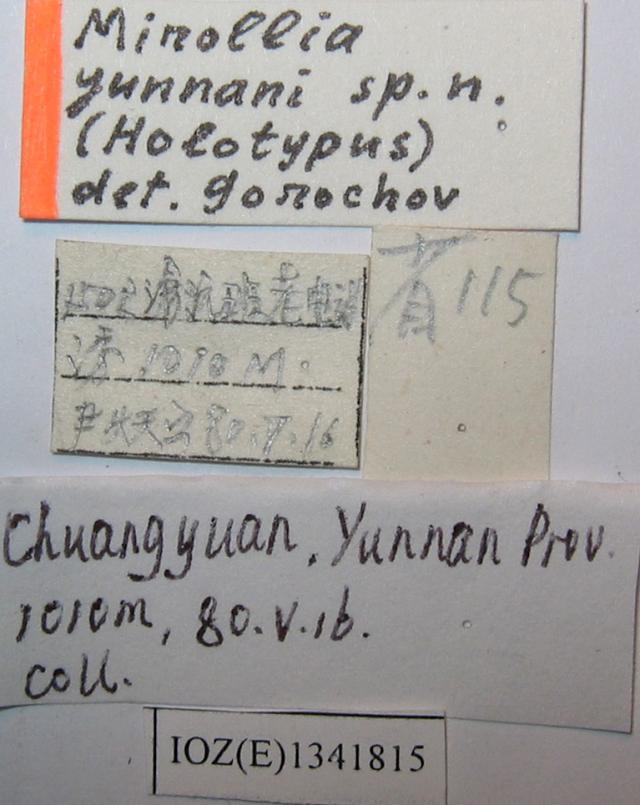 Minollia
yunnani sp. n.
(Holotypus)
det. Gorochov
1010 M.
80.V.16
115
Chuangyuan, Yunnan Prov.
1010m, 80.V.16.
coll.
IOZ(E)1341815